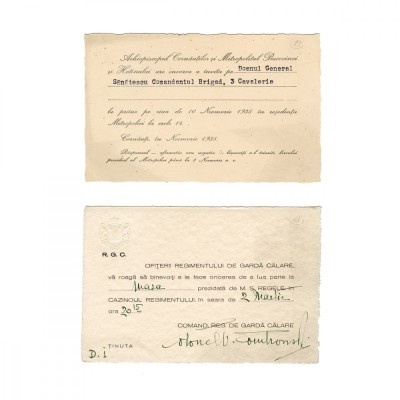 Arhiepiscopul Cernăuților și Mitropolitul Bucovinei
și Hotinului are onoarea a invita pe Domnul General
Sănătescu Comandantul Brigad, 3 Cavalerie
la prânz pe ziua de 10 Noemvrie 1935 în reședința
Metropoliei la orele 14.
Cernăuți, în Noemvrie 1935.
Răspunsul – afirmativ sau negativ –
R. G. C.
OFIȚERII REGIMENTULUI DE GARDĂ CĂLARE,
vă roagă să binevoiți a le face onoarea de a lua parte la
masa prezidată de M. S. REGELE în
CAZINOUL REGIMENTULUI în seara de 2 Martie
ora 20 15
COMAND. REG. DE GARDĂ CĂLARE
Colonel
ȚINUTA
D. i